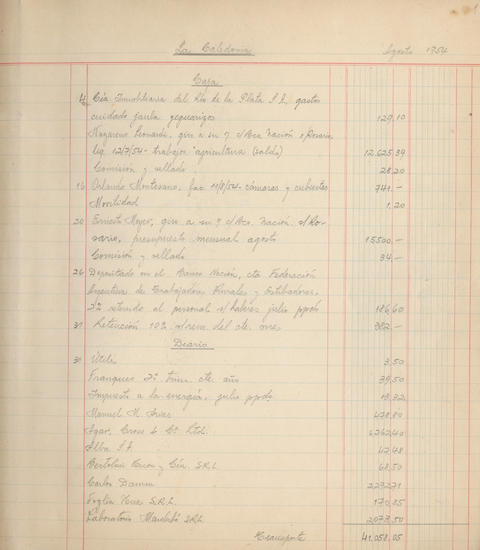 La Caledonia Agosto 1954
Caja
4 Cía Inmobiliaria del Río de la Plata S.A. gastos
cuidado jaula 129,10
Nazareno Leonardi, giro a su n/ c/Bco Nación s/Rosario
liq. 12/7/54 - trabajos agricultura (saldo) 12.625,39
Comisión y sellado 28,20
16 Orlando Montesano, fac. 11/8/54 - cámaras y cubiertas 741,-
Movilidad 1,20
20 Ernesto Meyer, giro a su n/ c/Bco. Nación s/Ro-
sario, presupuesto mensual agosto 15500,-
Comisión y sellado 34,-
26 Depositado en el Banco Nación, cta Federación
de Trabajadores Rurales y Estibadores,
retenido al personal s/haberes julio ppdo. 186,60
31 Retención 10% del cte. mes 382,-
Diario
31 Utiles 3,50
Franqueo 2º Trim. cte. año 39,50
Impuesto a la energía, julio ppdo. 13,32
Manuel M. 478,80
Agar, Cross & Co. Ltd. 6262,40
Alba S.A. 42,48
Bertolin y Cía. S.R.L. 68,50
Carlos Damm
Foglia Hnos S.R.L. 170,85
Laboratorio S.R.L. 2073,50
Transporte 41.058,05